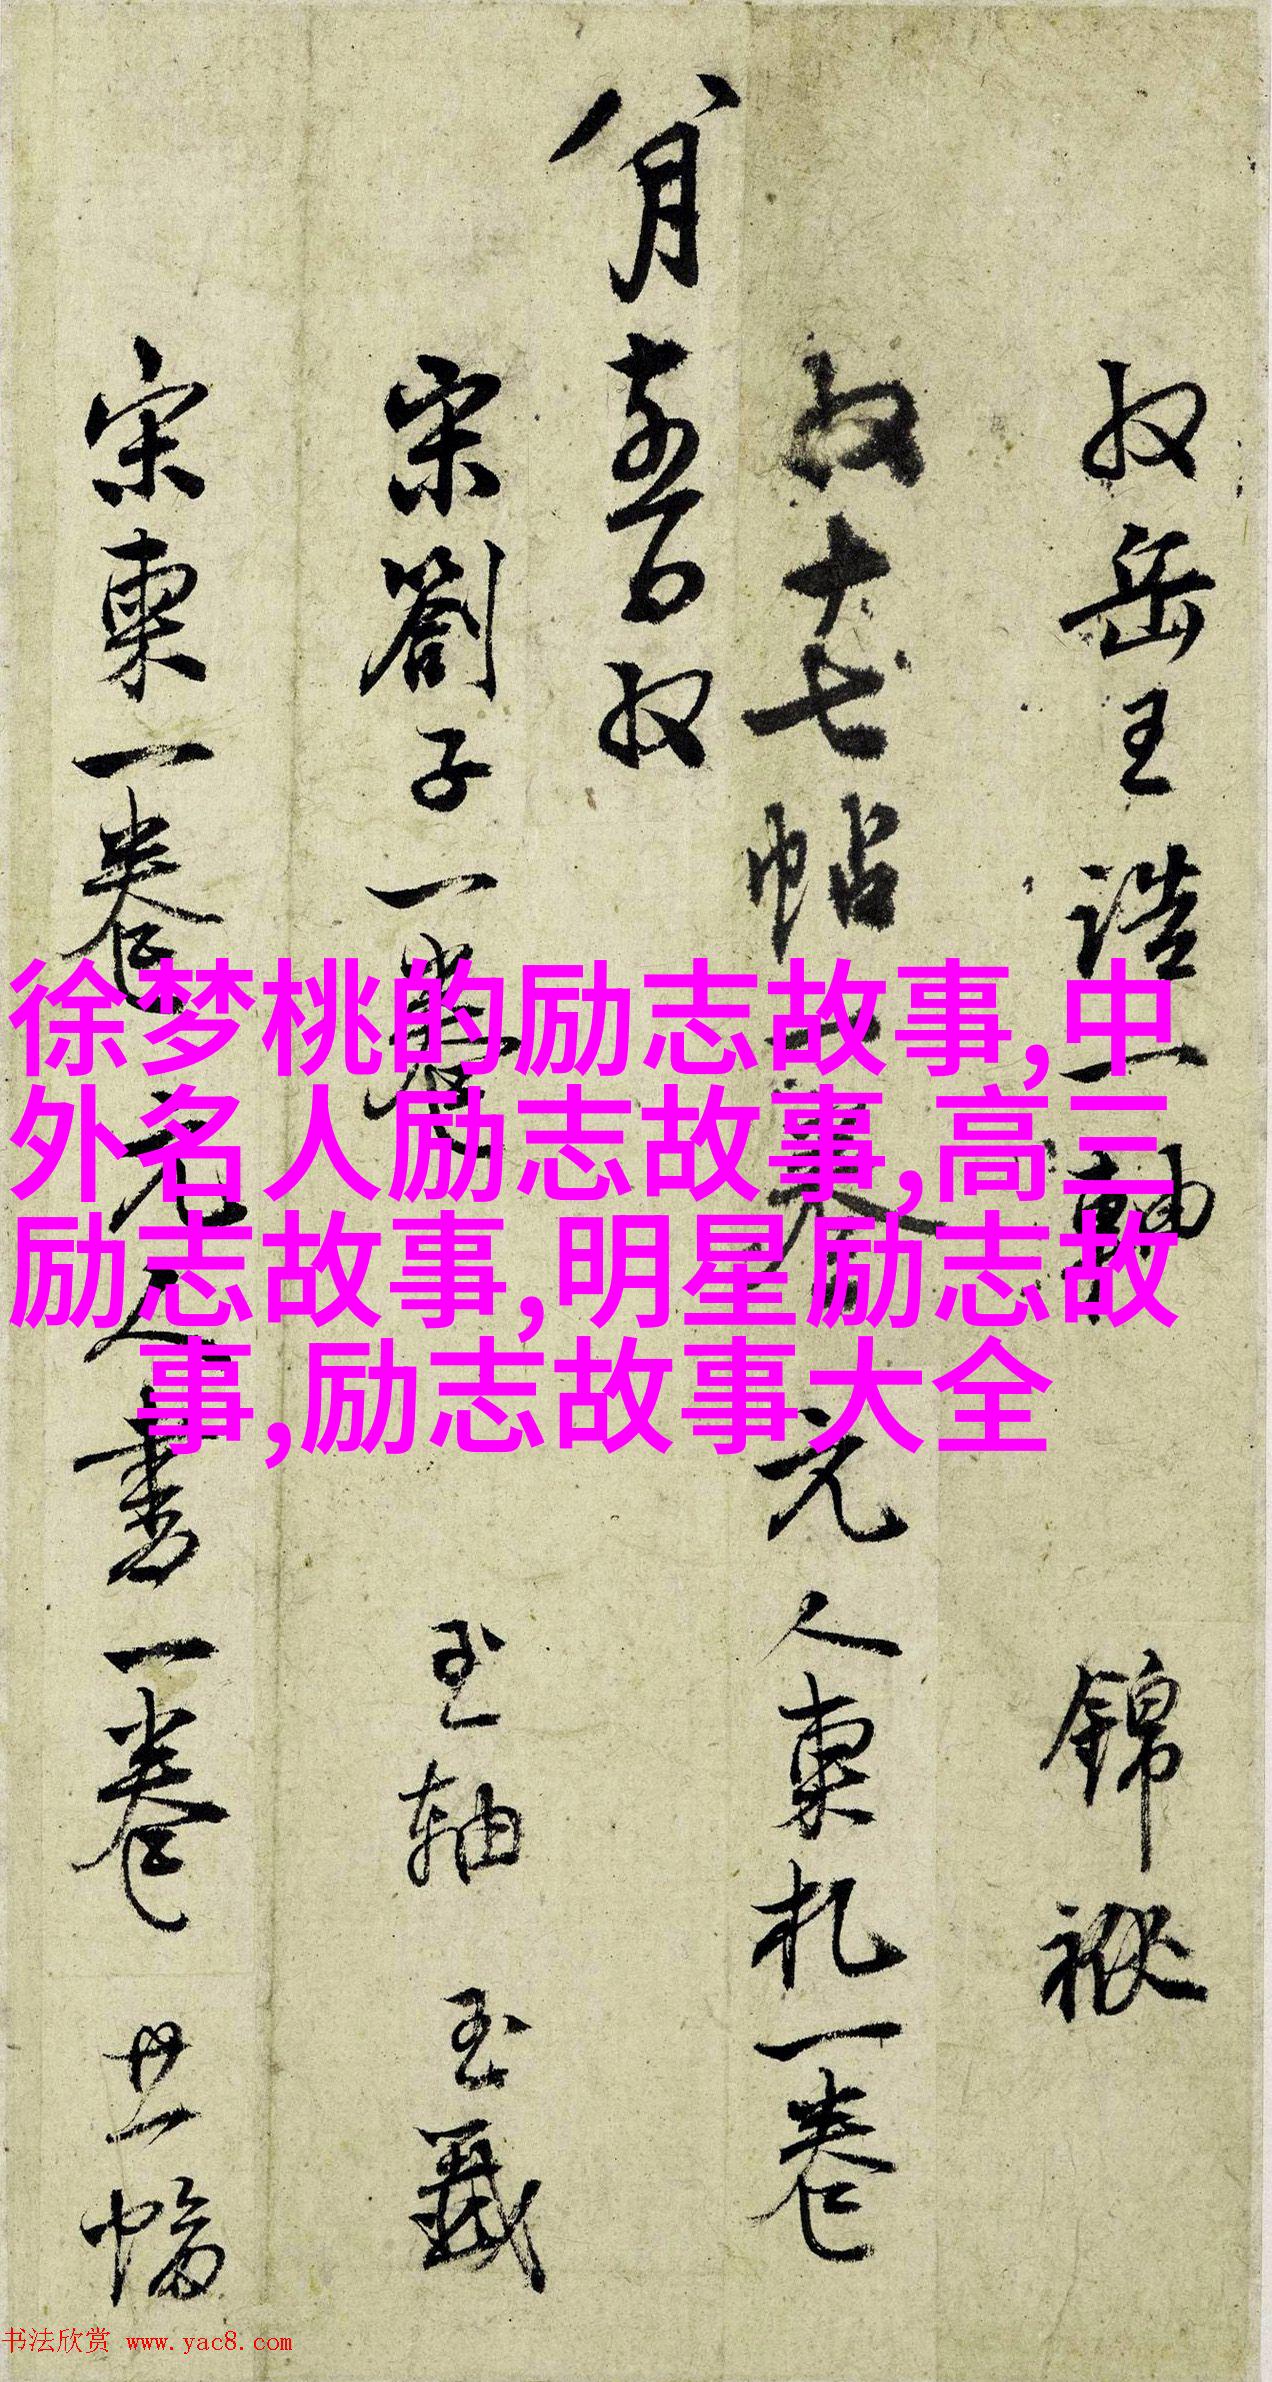 收岳王诰一轴 锦褫
收十七帖一卷 元人柬札一卷
八月 收
宋劄子一卷 玉轴 玉籖
宋柬一卷 元人书一卷 廿一幅
徐梦桃的励志故事,中
外名人励志故事,高三
励志故事,明星励志故
事,励志故事大全
书法欣赏 www.yac8.com